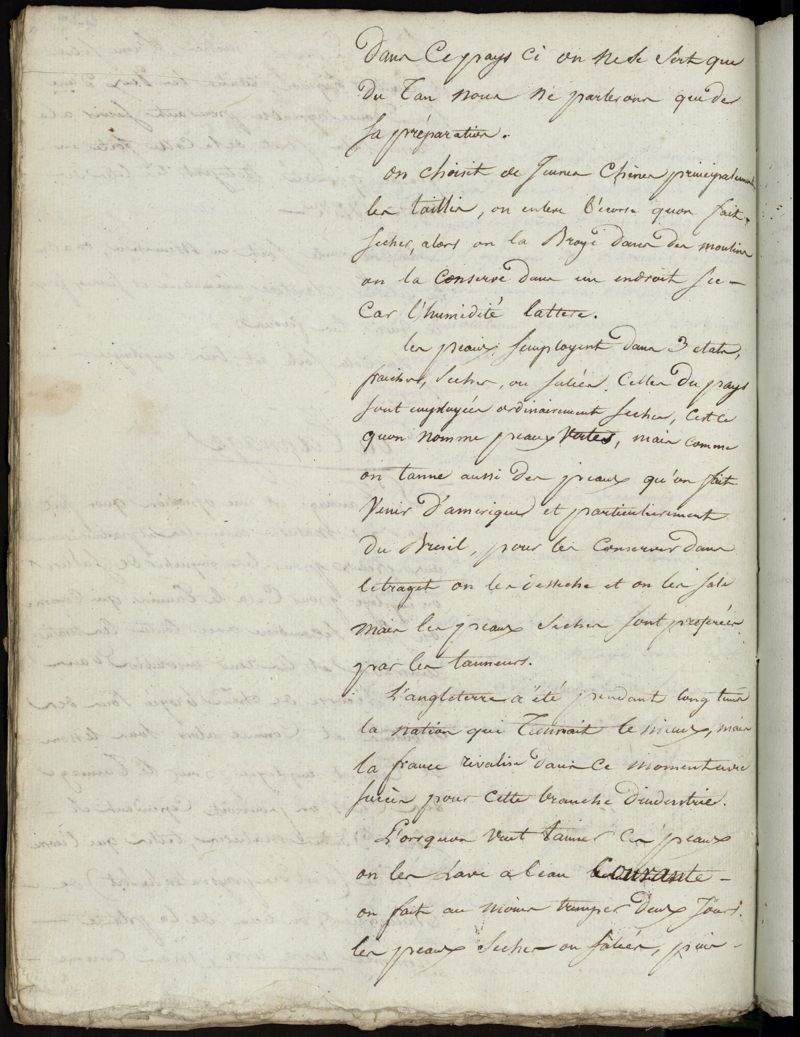 Dans Ce pays ci on ne se sert que
du Tan nous ne parlerons que de
sa préparation.
on choisit de Jeunes Chênes principalement
les taillis, on enleve l'écorse quon fait
secher, alors on la Broye dans des moulins
on la Conserve dans un endroit sec –
Car l'humidité lattere.
les peaux semployent dans 3 etats,
fraiches, seches, ou salées. Celles du pays
sont employées ordinairement seches, cest ce
quon nomme peaux Vertes, mais comme
on tanne aussi des peaux qu'on fait
Venir d'amerique et particulierement
du Bresil, pour les Conserver dans
letrajet on les desseche et on les sale
mais les peaux seches sont preferées
par les tanneurs.
L'angleterre a été pendant long tems
la nation qui Tannait le mieux, mais
la france rivalise dans ce moment avec
succès pour cette branche d'industrie.
Lorsquon veut tanner ces peaux
on les Lave a leau Courante –
on fait au moins tremper deux Jours
les peaux seches ou salées, puis –